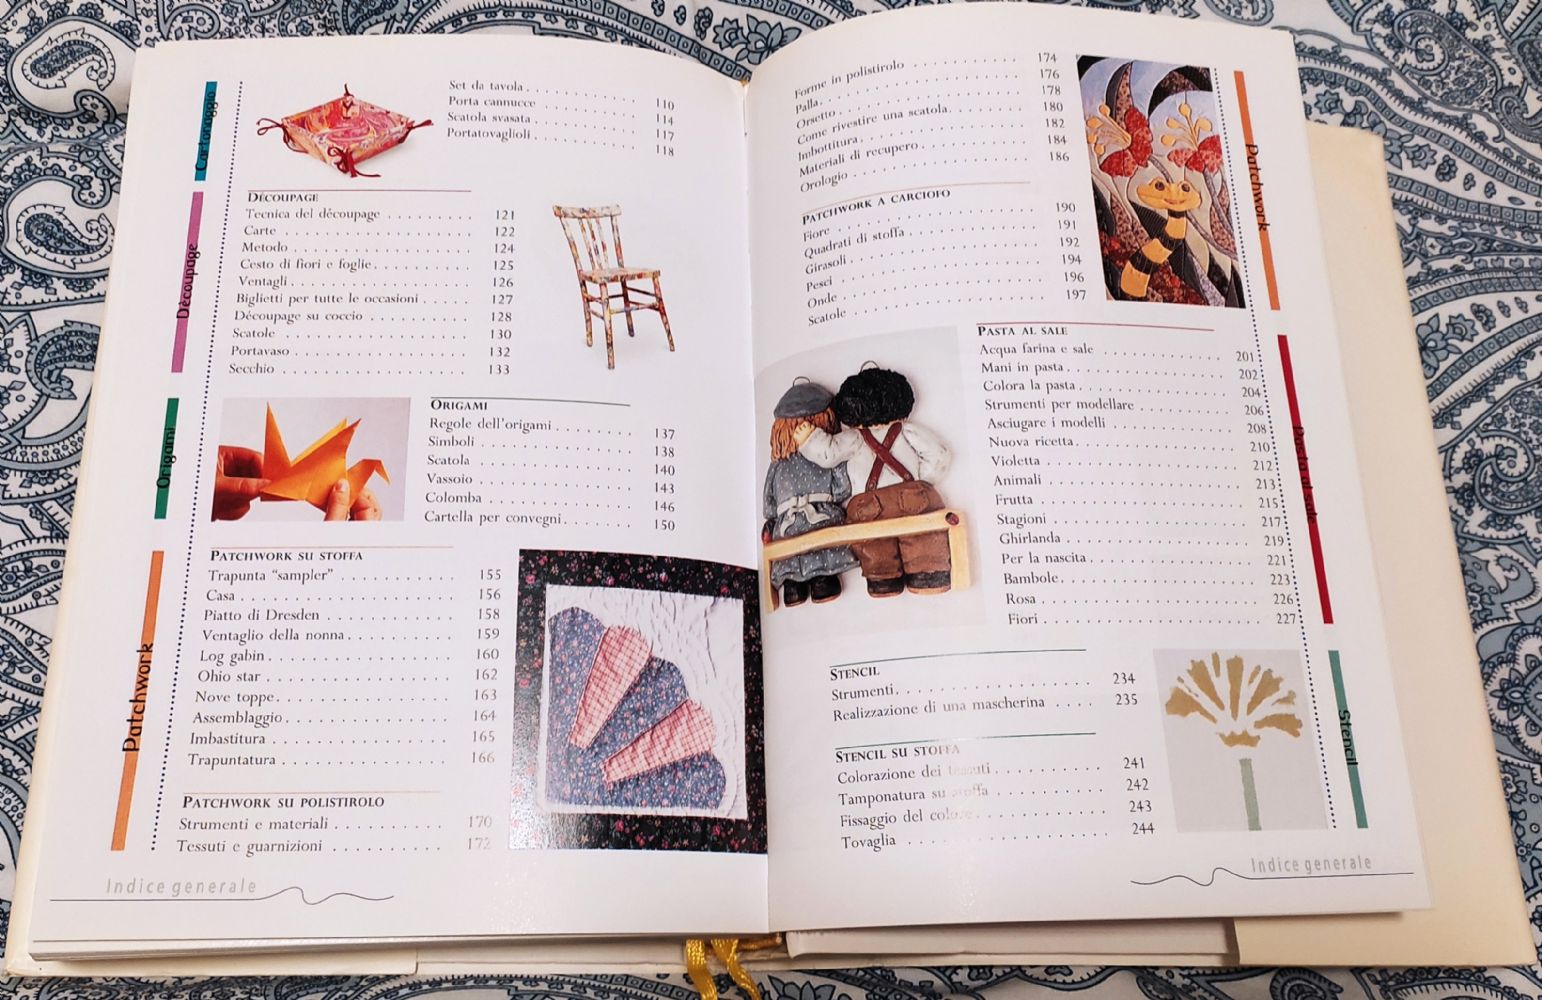 Cartonaggio
Set da tavola . . . . . . . . . . . . . 110
Porta cannucce . . . . . . . . . . . . 114
Scatola svasata . . . . . . . . . . . . 117
Portatovaglioli . . . . . . . . . . . . 118
Découpage
DÉCOUPAGE
Tecnica del découpage . . . . . . . . . 121
Carte . . . . . . . . . . . . . . . . . 122
Metodo . . . . . . . . . . . . . . . . 124
Cesto di fiori e foglie . . . . . . . . . 125
Ventagli . . . . . . . . . . . . . . . . 126
Biglietti per tutte le occasioni . . . . . 127
Découpage su coccio . . . . . . . . . . 128
Scatole . . . . . . . . . . . . . . . . 130
Portavaso . . . . . . . . . . . . . . . 132
Secchio . . . . . . . . . . . . . . . . 133
Origami
ORIGAMI
Regole dell'origami . . . . . . . . . . 137
Simboli . . . . . . . . . . . . . . . . 138
Scatola . . . . . . . . . . . . . . . . 140
Vassoio . . . . . . . . . . . . . . . . 143
Colomba . . . . . . . . . . . . . . . 146
Cartella per convegni . . . . . . . . . 150
Patchwork
PATCHWORK SU STOFFA
Trapunta “sampler” . . . . . . . . . . 155
Casa . . . . . . . . . . . . . . . . . 156
Piatto di Dresden . . . . . . . . . . . 158
Ventaglio della nonna . . . . . . . . . 159
Log gabin . . . . . . . . . . . . . . . 160
Ohio star . . . . . . . . . . . . . . . 162
Nove toppe . . . . . . . . . . . . . . 163
Assemblaggio . . . . . . . . . . . . . 164
Imbastitura . . . . . . . . . . . . . . 165
Trapuntatura . . . . . . . . . . . . . 166
PATCHWORK SU POLISTIROLO
Strumenti e materiali . . . . . . . . . . 170
Tessuti e guarnizioni . . . . . . . . . . 172
Indice generale
Forme in polistirolo . . . . . . . . . . 174
Palla . . . . . . . . . . . . . . . . . 176
Orsetto . . . . . . . . . . . . . . . . 178
Come rivestire una scatola . . . . . . . 180
Imbottitura . . . . . . . . . . . . . . 182
Materiali di recupero . . . . . . . . . . 184
Orologio . . . . . . . . . . . . . . . 186
Patchwork
PATCHWORK A CARCIOFO
Fiore . . . . . . . . . . . . . . . . . 190
Quadrati di stoffa . . . . . . . . . . . 191
Girasoli . . . . . . . . . . . . . . . . 192
Pesci . . . . . . . . . . . . . . . . . 194
Onde . . . . . . . . . . . . . . . . . 196
Scatole . . . . . . . . . . . . . . . . 197
PASTA AL SALE
Acqua farina e sale . . . . . . . . . . . 201
Mani in pasta . . . . . . . . . . . . . 202
Colora la pasta . . . . . . . . . . . . . 204
Strumenti per modellare . . . . . . . . 206
Asciugare i modelli . . . . . . . . . . . 208
Nuova ricetta . . . . . . . . . . . . . 210
Violetta . . . . . . . . . . . . . . . . 212
Animali . . . . . . . . . . . . . . . . 213
Frutta . . . . . . . . . . . . . . . . . 215
Stagioni . . . . . . . . . . . . . . . . 217
Ghirlanda . . . . . . . . . . . . . . . 219
Per la nascita . . . . . . . . . . . . . 221
Bambole . . . . . . . . . . . . . . . . 223
Rosa . . . . . . . . . . . . . . . . . 226
Fiori . . . . . . . . . . . . . . . . . 227
Pasta al sale
STENCIL
Strumenti . . . . . . . . . . . . . . . 234
Realizzazione di una mascherina . . . . 235
Stencil
STENCIL SU STOFFA
Colorazione dei tessuti . . . . . . . . . 241
Tamponatura su stoffa . . . . . . . . . 242
Fissaggio del colore . . . . . . . . . . 243
Tovaglia . . . . . . . . . . . . . . . . 244
Indice generale